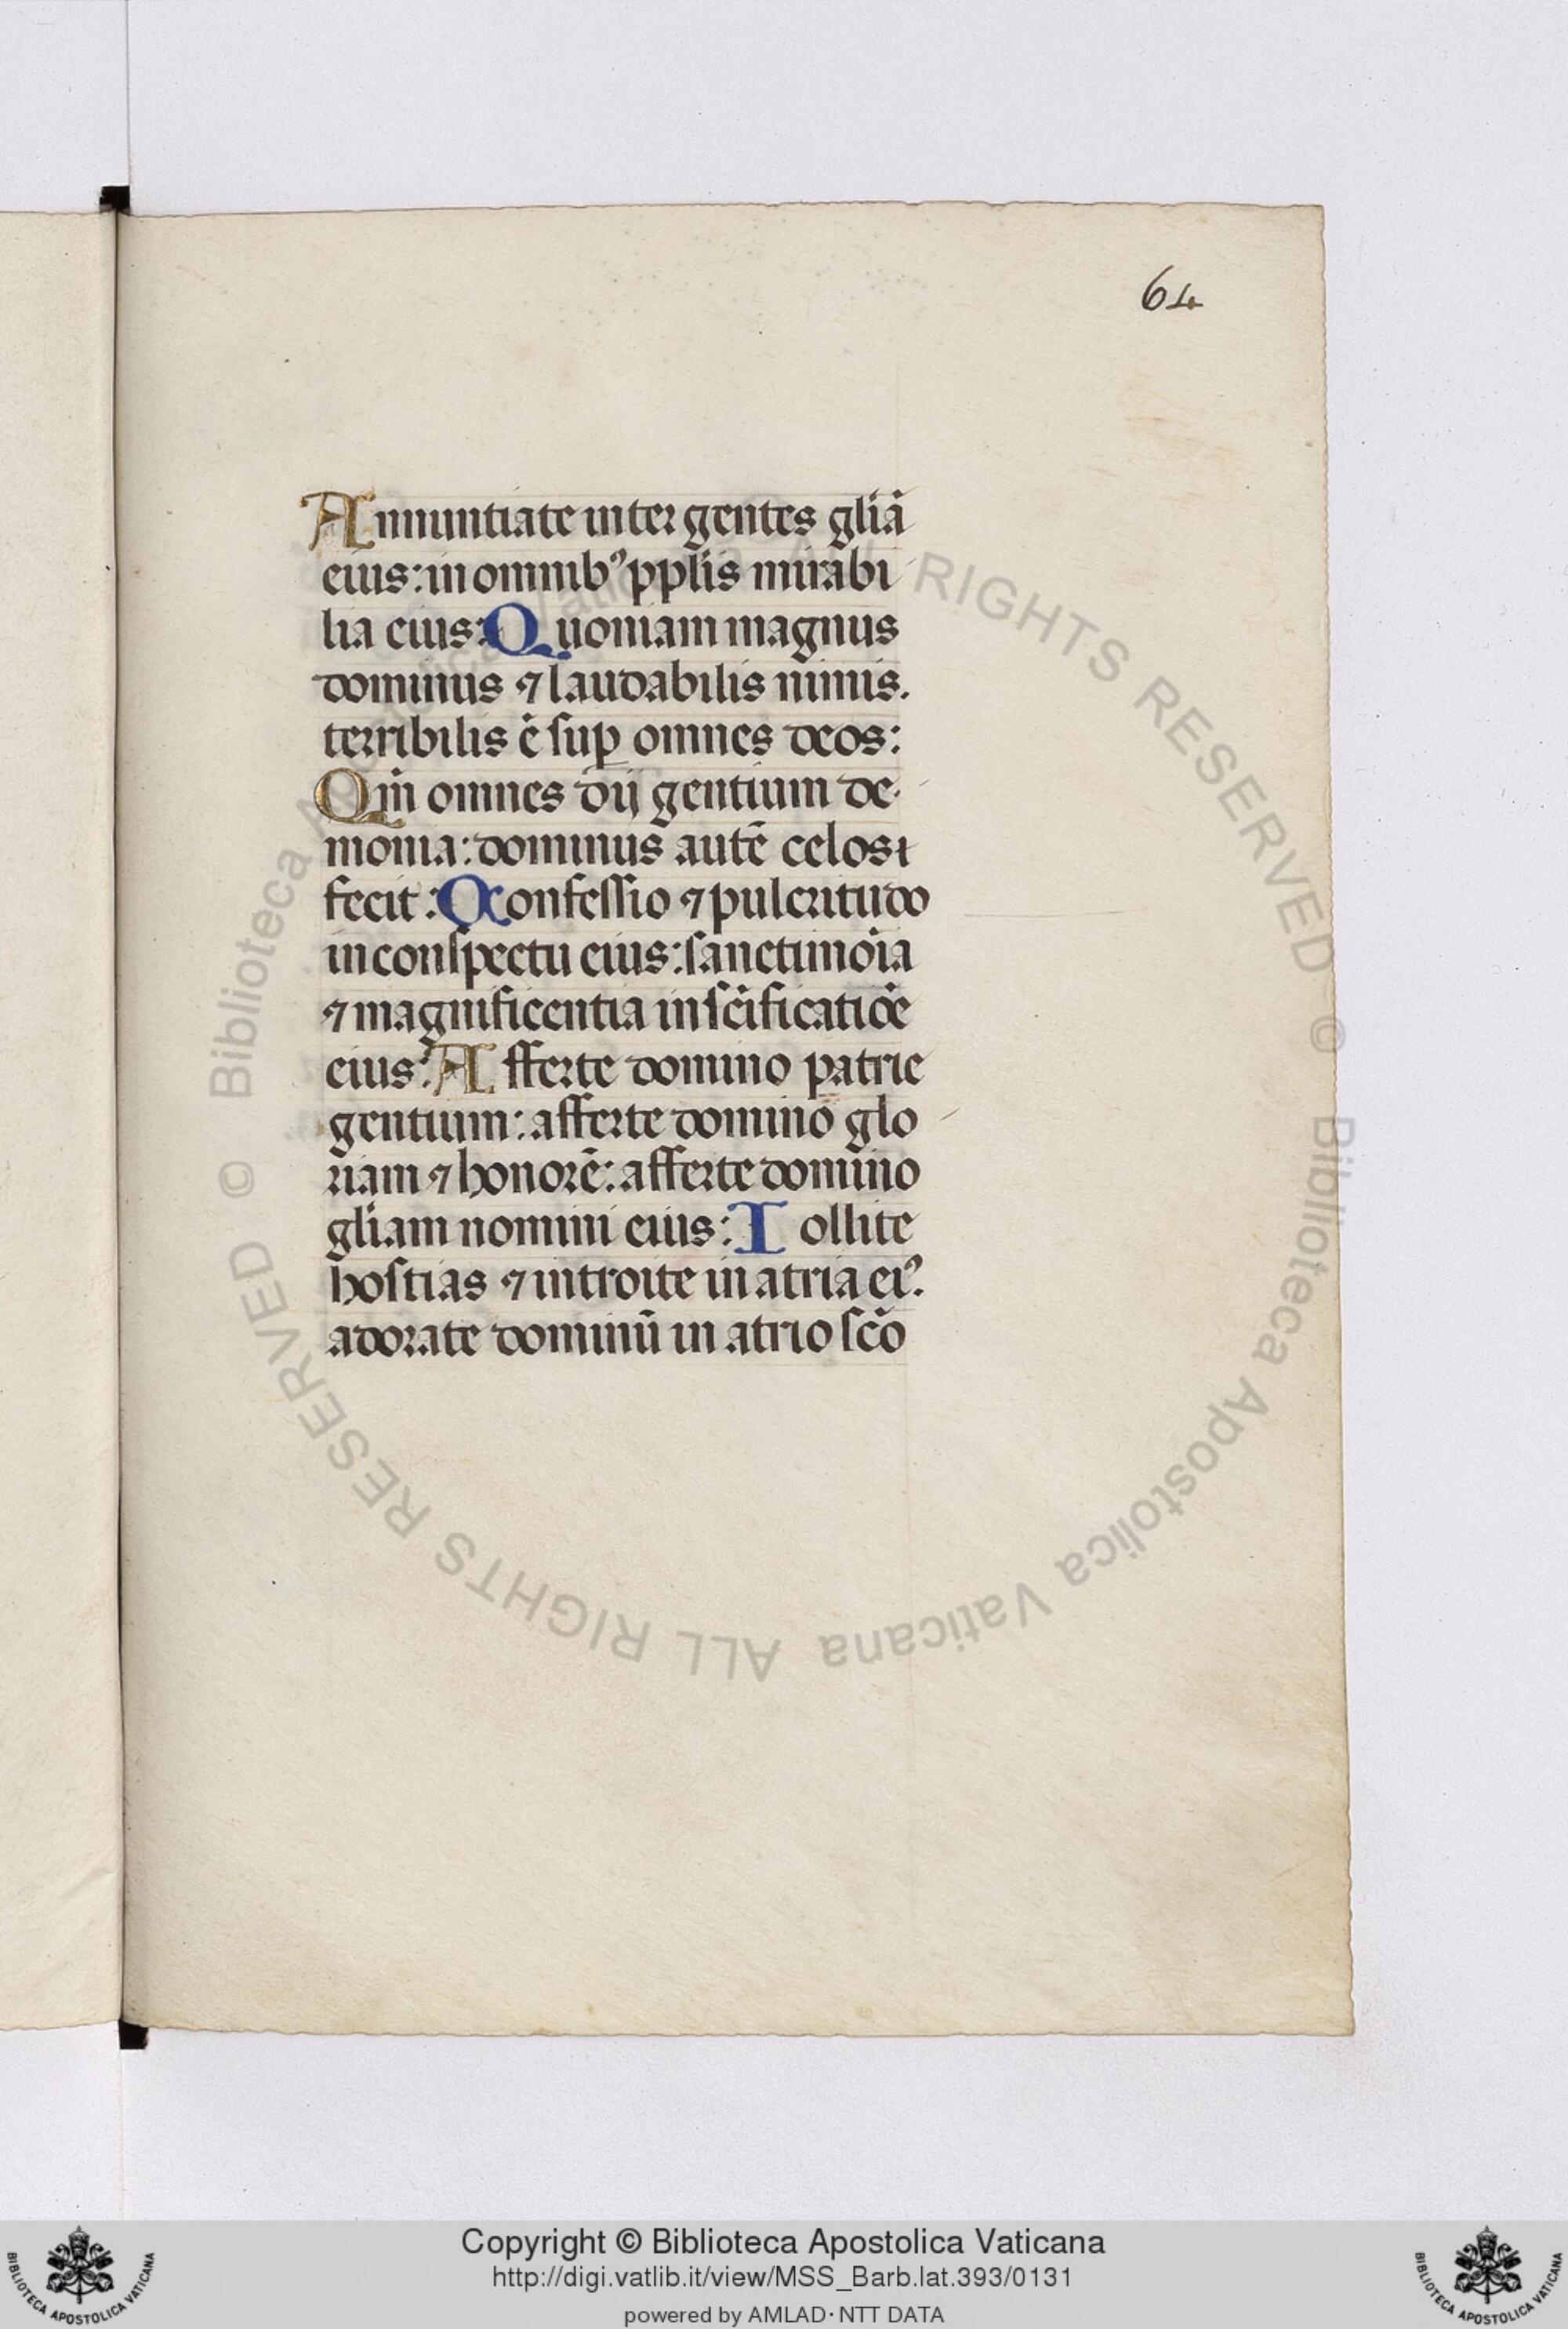 64
Annuntiate inter gentes gl̄iā
eius: in omnibꝰ ppl̄is mirabi
lia eius: Quoniam magnus
dominus ⁊ laudabilis nimis.
terribilis ē suꝑ omnes deos:
Qm̄ omnes dij gentium de-
monia: dominus autē celos
fecit: Confessio ⁊ pulcritudo
in conspectu eius: sanctimoīa
⁊ magnificentia in sc̄ificatiōe
eius: Afferte domino patrie
gentium: afferte domino glo
riam ⁊ honorē: afferte domino
gl̄iam nomini eius: Tollite
hostias ⁊ introite in atria eiꝰ.
adorate dominū in atrio sc̄o
© Biblioteca Apostolica Vaticana ALL RIGHTS RESERVED © Biblioteca Apostolica Vaticana ALL RIGHTS RESERVED
Copyright © Biblioteca Apostolica Vaticana
http://digi.vatlib.it/view/MSS_Barb.lat.393/0131
powered by AMLAD · NTT DATA
BIBLIOTECA APOSTOLICA VATICANA
BIBLIOTECA APOSTOLICA VATICANA